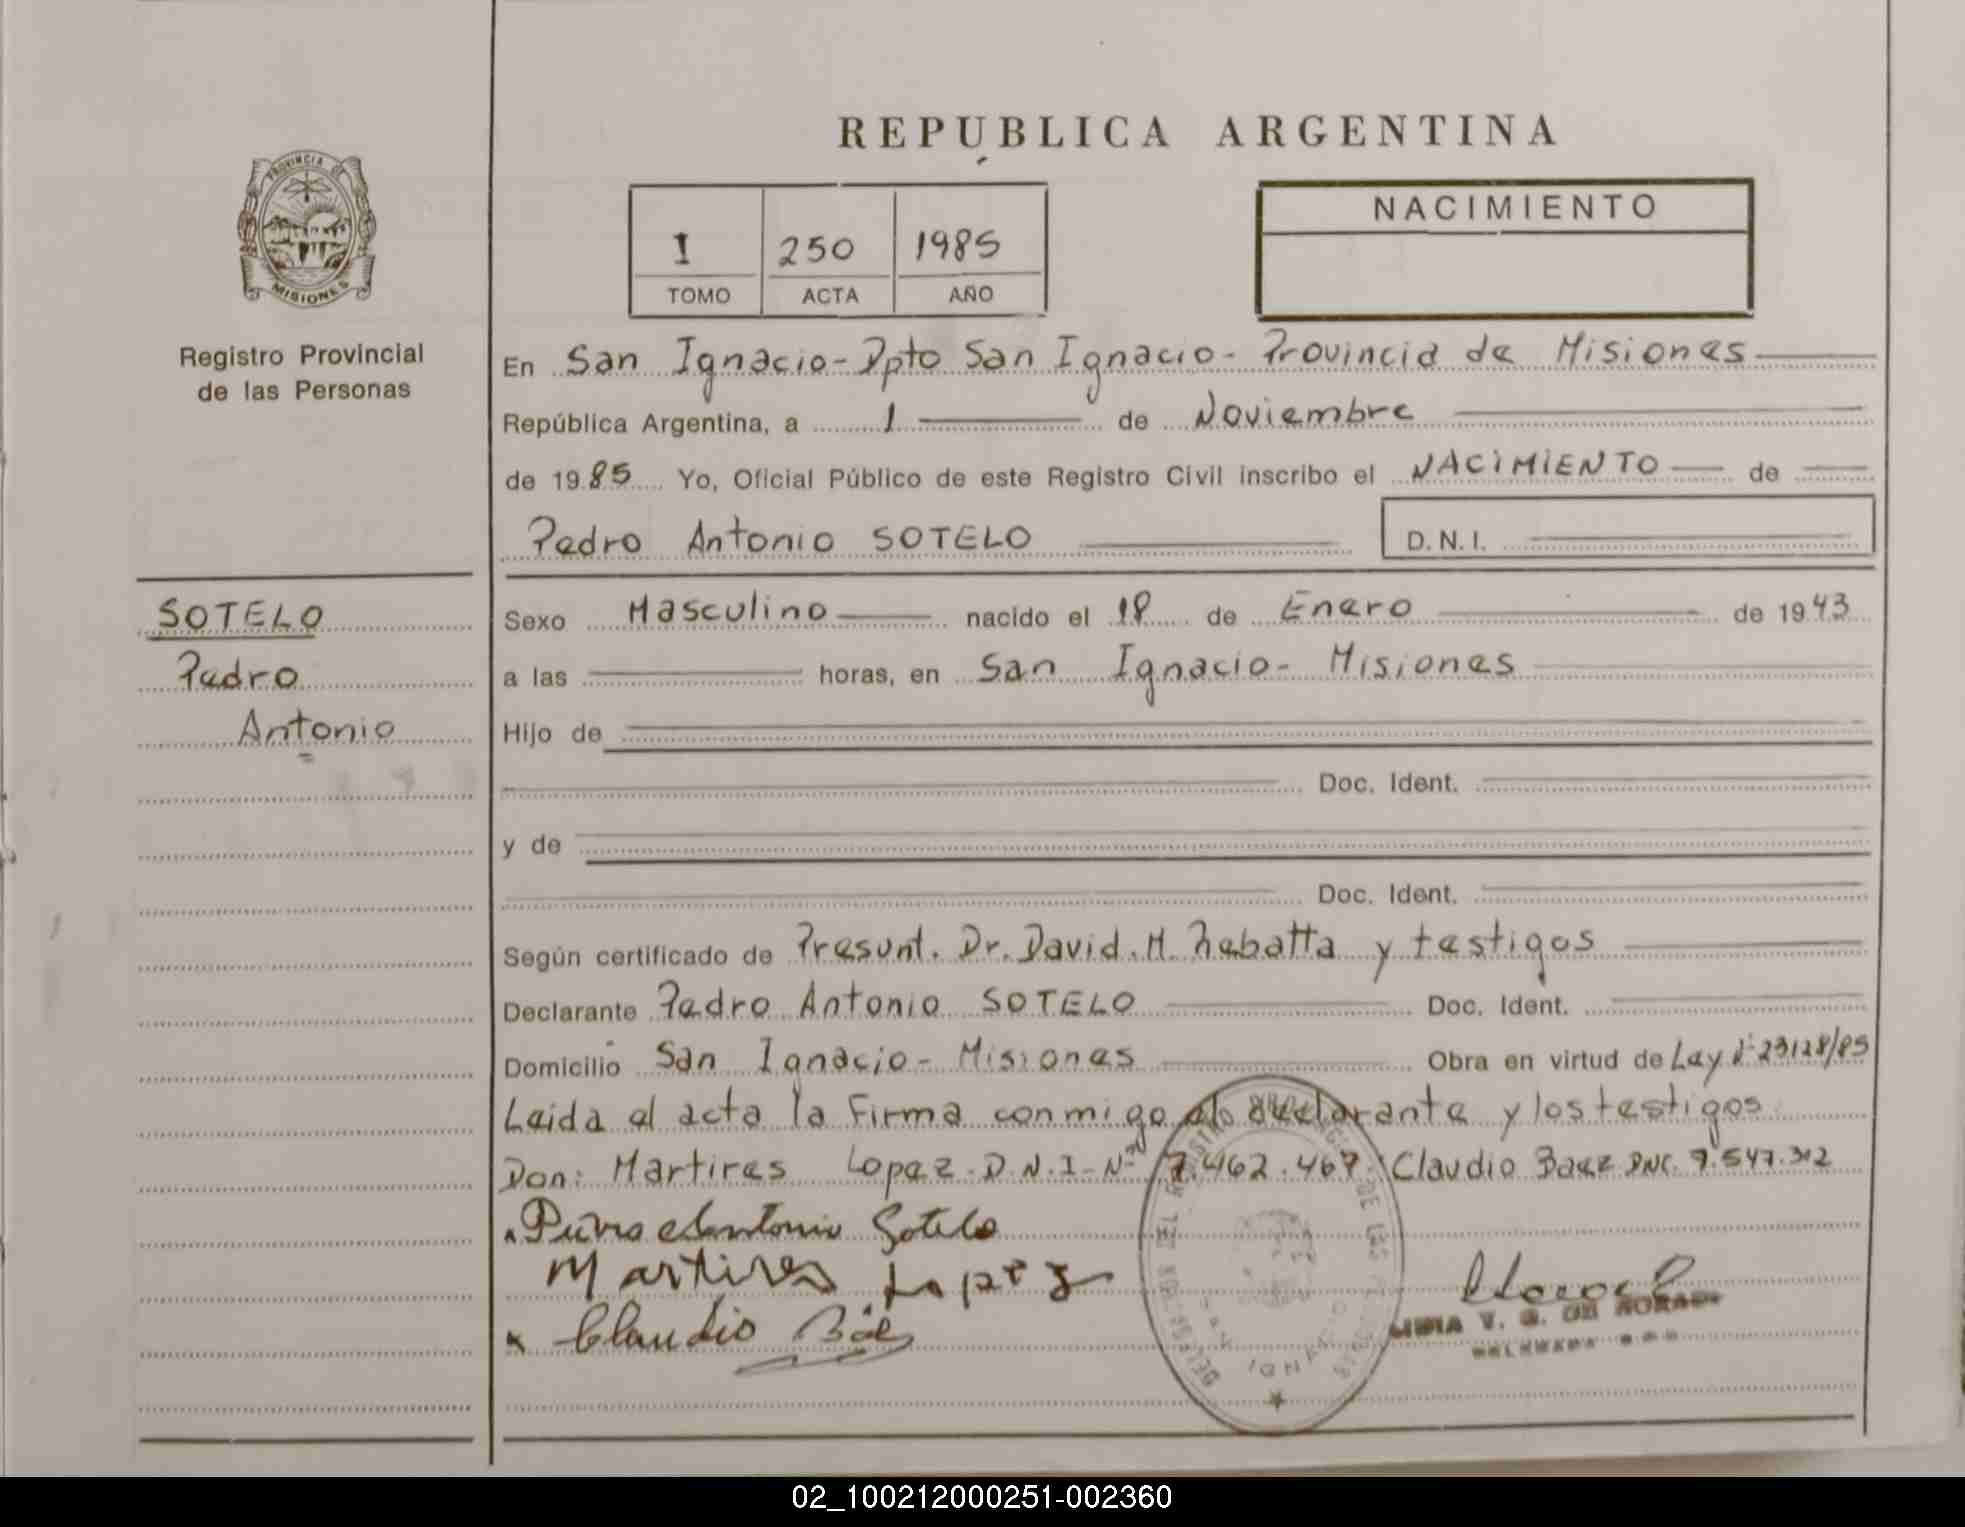 REPUBLICA ARGENTINA
PROVINCIA DE
MISIONES
Registro Provincial
de las Personas
I 250 1985
TOMO ACTA AÑO
NACIMIENTO
En San Ignacio - Dpto San Ignacio - Provincia de Misiones
República Argentina, a 1 de Noviembre
de 1985 Yo, Oficial Público de este Registro Civil inscribo el NACIMIENTO de
Pedro Antonio SOTELO D.N.I.
SOTELO
Pedro
Antonio
Sexo Masculino nacido el 18 de Enero de 1943
a las horas, en San Ignacio - Misiones
Hijo de
Doc. Ident.
y de
Doc. Ident.
Según certificado de Presunt. Dr. David. H. Rebatta y testigos
Declarante Pedro Antonio SOTELO Doc. Ident.
Domicilio San Ignacio - Misiones Obra en virtud de Ley Nº 23128/85
Leida el acta la Firma conmigo el declarante y los testigos
Don: Martires Lopez. D.N.I-Nº 7.462.467 Claudio Baez DNI. 7.547.312
Pedro Antonio Sotelo
Martires Lopez
x Claudio Báez
SAN IGNACIO
LIDIA V. G. DE
02_100212000251-002360